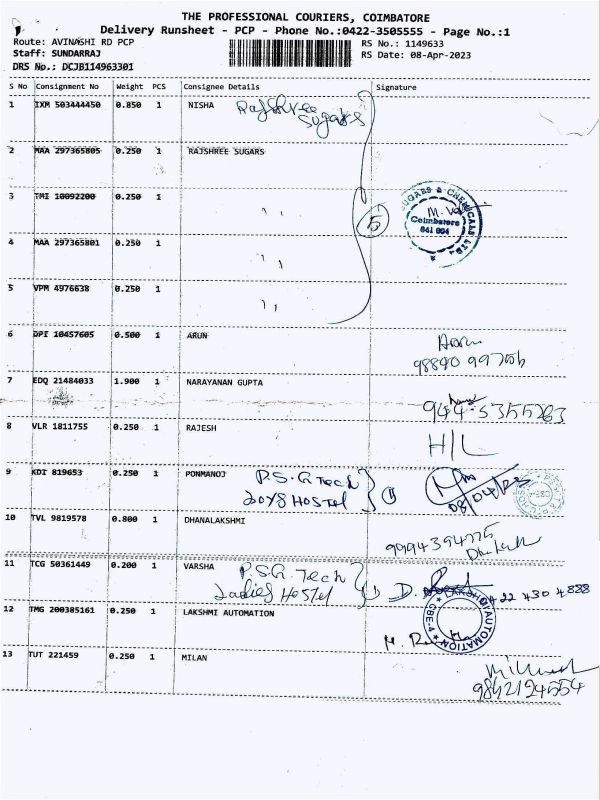 THE PROFESSIONAL COURIERS, COIMBATORE
Delivery Runsheet - PCP - Phone No.:0422-3505555 - Page No.:1
Route: AVINASHI RD PCP
RS No.: 1149633
Staff: SUNDARRAJ
RS Date: 08-Apr-2023
DRS No.: DCJB114963301
S No Consignment No Weight PCS Consignee Details Signature
1 IXM 503444450 0.850 1 NISHA Rajshree
Sugars
2 MAA 297365805 0.250 1 RAJSHREE SUGARS
3 TMI 10092200 0.250 1 " 5
SUGARS & CHEMICALS LTD.
Coimbatore
641 004
4 MAA 297365801 0.250 1 "
5 VPM 4976638 0.250 1 "
6 DPI 10457605 0.500 1 ARUN
7 EDQ 21484033 1.900 1 NARAYANAN GUPTA
8 VLR 1811755 0.250 1 RAJESH H/L
9 KDI 819653 0.250 1 PONMANOJ P.S.G Tech
Boys Hostel
08/04/23
10 TVL 9819578 0.800 1 DHANALAKSHMI
11 TCG 50361449 0.200 1 VARSHA P.S.G. Tech
Ladies Hostel
12 TMG 200385161 0.250 1 LAKSHMI AUTOMATION
LAKSHMI AUTOMATION
CBE-4
13 TUT 221459 0.250 1 MILAN
9842124554